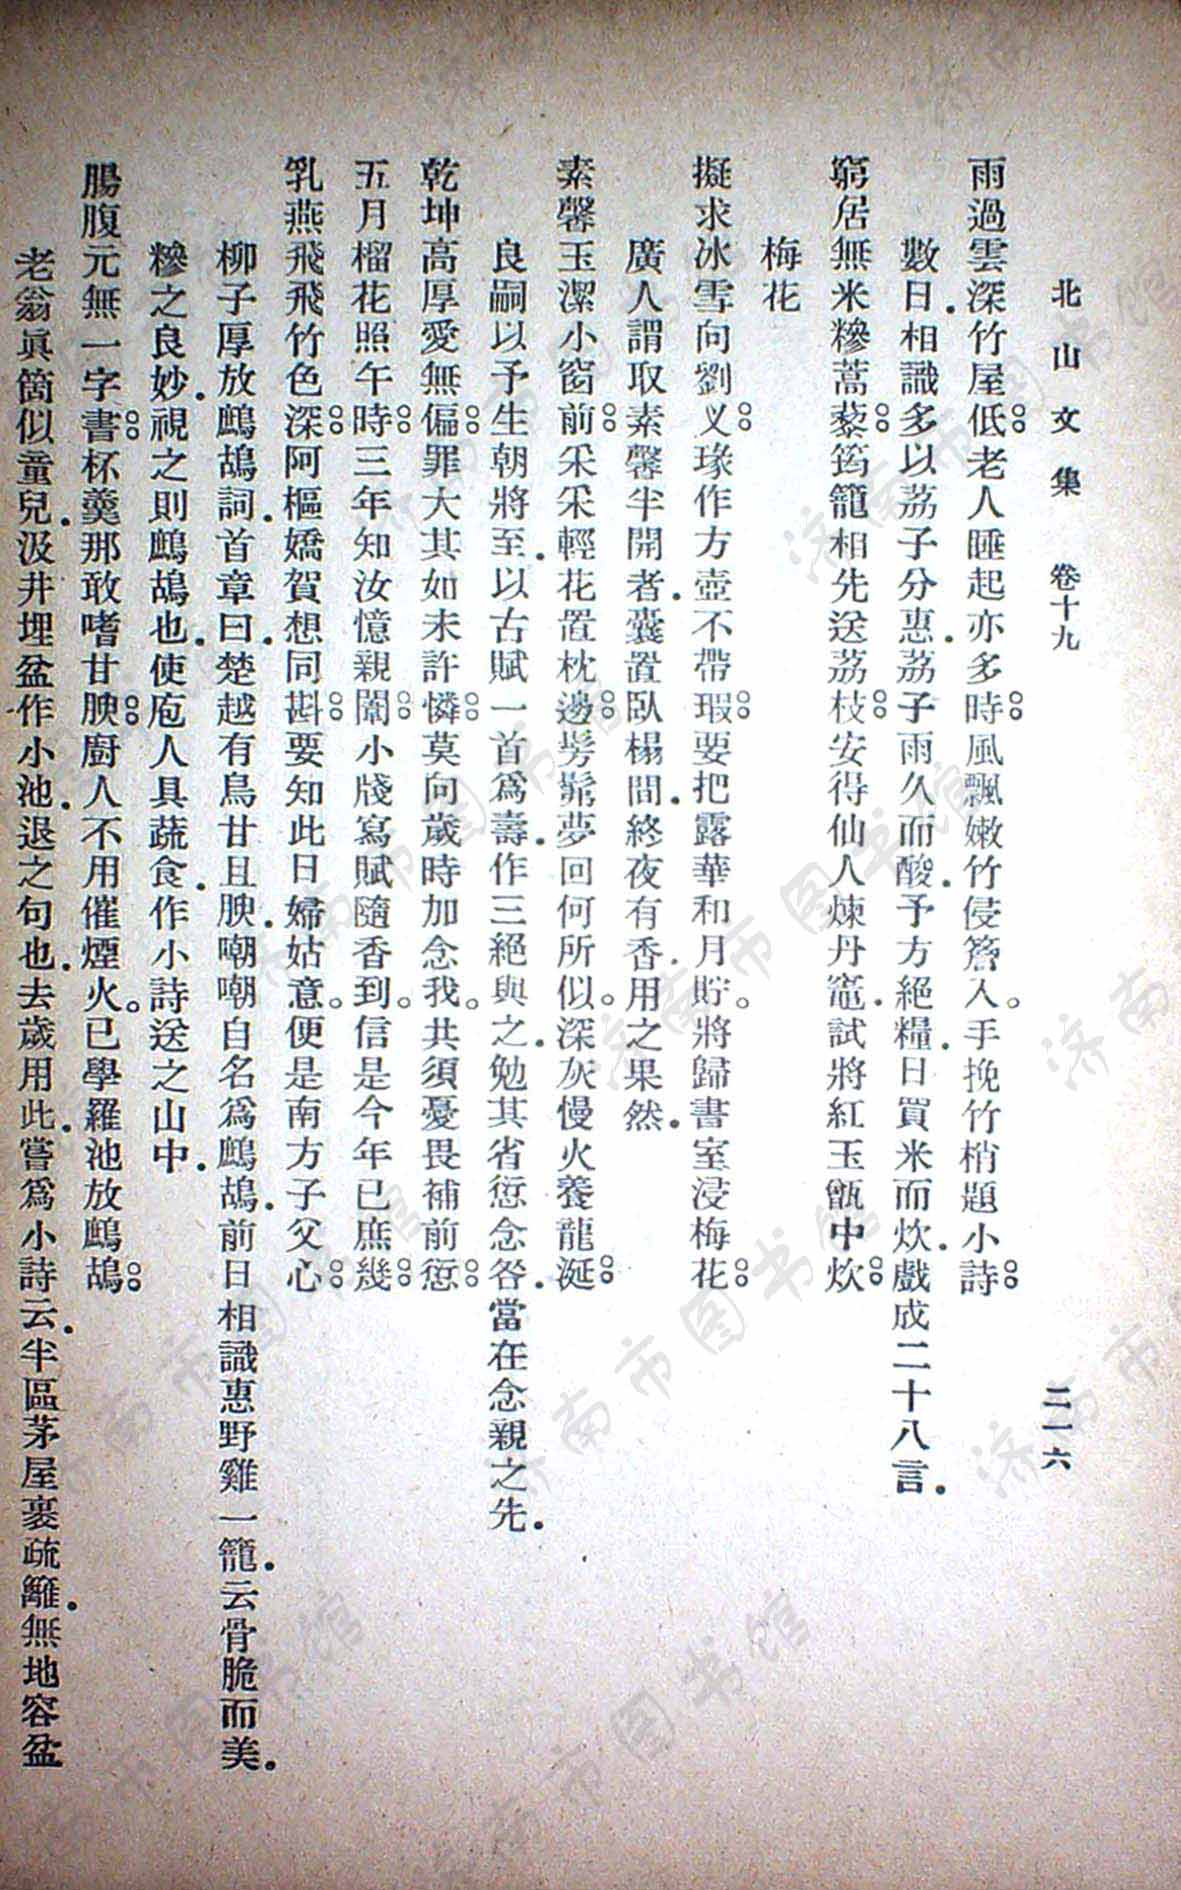 北山文集　卷十九　二一六
雨過雲深竹屋低。老人睡起亦多時。風飄嫩竹侵簷入。手挽竹梢題小詩。
數日相識多以荔子分惠。荔子雨久而酸。予方絕糧。日買米而炊。戲成二十八言。
窮居無米糝蒿藜。筠籠相先送荔枝。安得仙人煉丹竈。試將紅玉甑中炊。
梅花
擬求冰雪向劉义。瑑作方壺不帶瑕。要把露華和月貯。將歸書室浸梅花。
廣人謂取素馨半開者。囊置臥榻間。終夜有香。用之果然。
素馨玉潔小窗前。采采輕花置枕邊。髣髴夢回何所似。深灰慢火養龍涎。
良嗣以予生朝將至。以古賦一首爲壽。作三絕與之。勉其省愆念咎。當在念親之先。
乾坤高厚愛無偏。罪大其如未許憐。莫向歲時加念我。共須憂畏補前愆。
五月榴花照午時。三年知汝憶親闈。小牋寫賦隨香到。信是今年已庶幾。
乳燕飛飛竹色深。阿樞嬌賀想同斟。要知此日婦姑意。便是南方子父心。
柳子厚放鷓鴣詞。首章曰。楚越有鳥甘且腴。嘲嘲自名爲鷓鴣。前日相識惠野雞一籠。云骨脆而美。
糝之良妙。視之則鷓鴣也。使庖人具蔬食。作小詩送之山中。
腸腹元無一字書。杯羹那敢嗜甘腴。廚人不用催煙火。已學羅池放鷓鴣。
老翁眞箇似童兒。汲井埋盆作小池。退之句也。去歲用此。嘗爲小詩云。半區茅屋裹疏籬。無地容盆